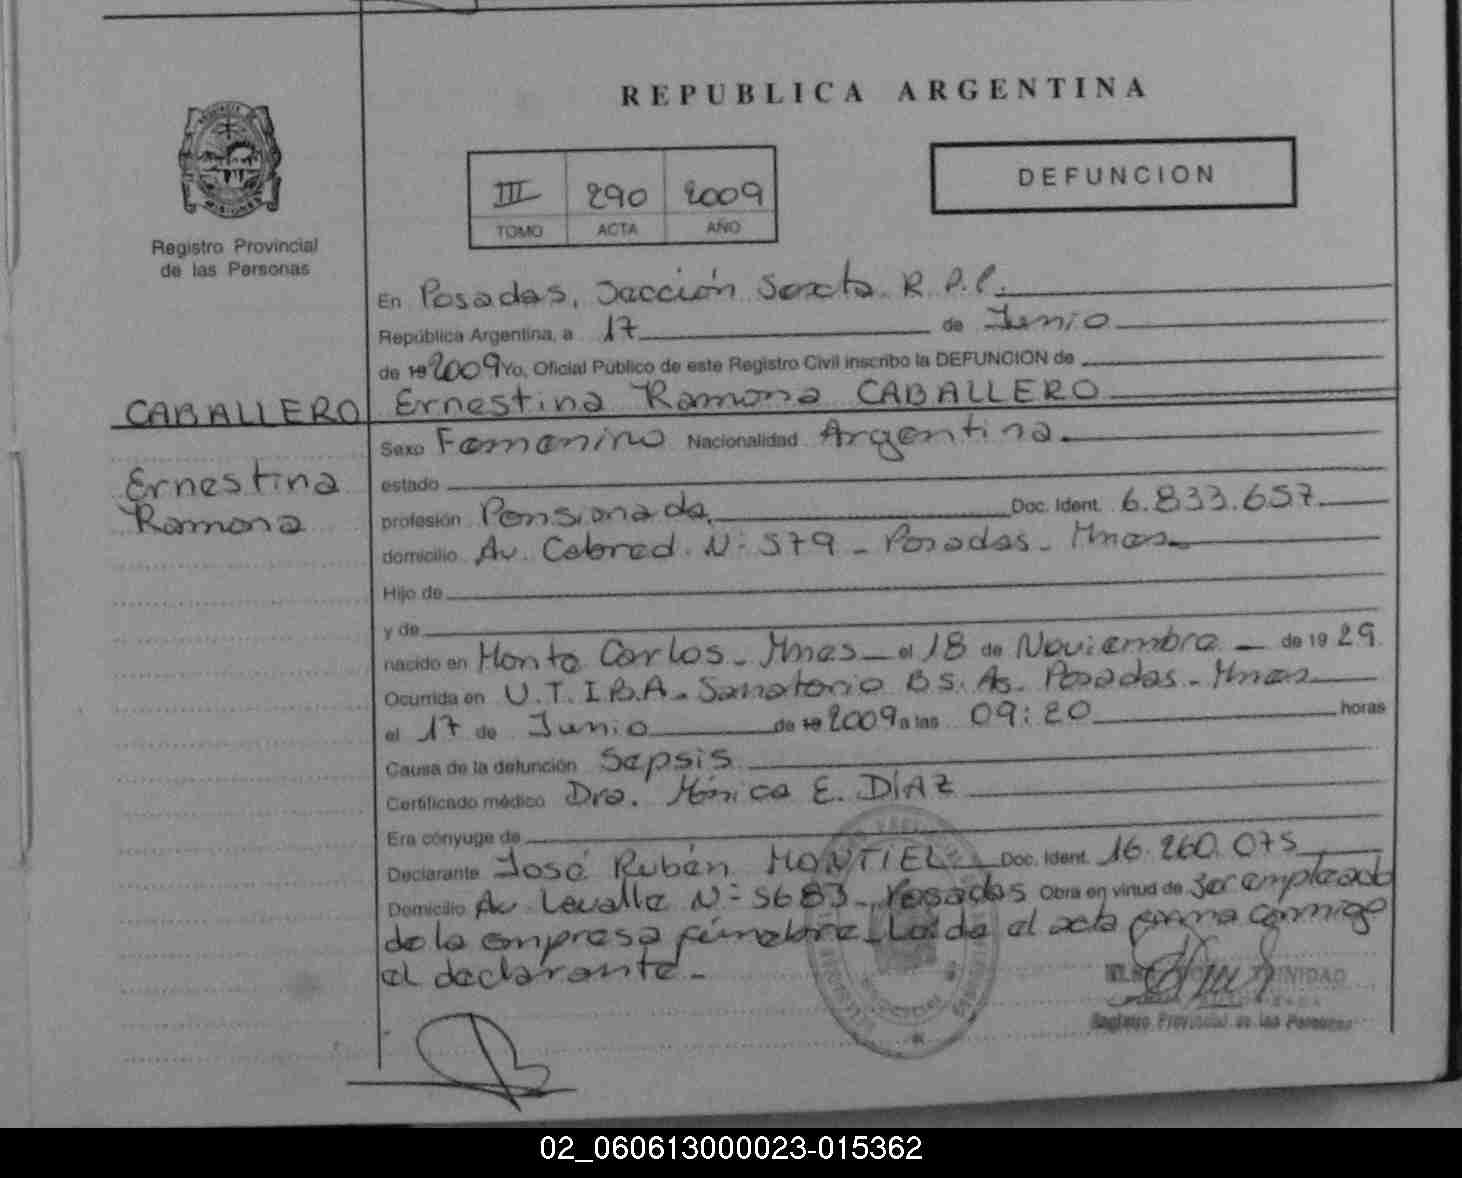 REPUBLICA ARGENTINA
III 290 2009
TOMO ACTA AÑO
DEFUNCION
Registro Provincial
de las Personas
En Posadas, Sección Sexta R.P.P.
República Argentina, a 17 de Junio
de 19 2009 Yo, Oficial Público de este Registro Civil inscribo la DEFUNCION de
CABALLERO Ernestina Ramona CABALLERO
Ernestina
Ramona
Sexo Femenino Nacionalidad Argentina
estado
profesión Pensionada Doc. Ident. 6.833.657
domicilio Av. Cabred N- 579 - Posadas - Mnes
Hijo de
y de
nacido en Monte Carlos - Mnes - el 18 de Noviembre - de 1929
Ocurrida en U.T.I.B.A - Sanatorio Bs. As. Posadas - Mnes
el 17 de Junio de 19 2009 a las 09:20 horas
Causa de la defunción Sepsis
Certificado médico Dra. Mónica E. DÍAZ
Era cónyuge de
Declarante José Rubén MONTIEL Doc. Ident. 16.260.075
Domicilio Av. Lavalle N- 5683 - Posadas Obra en virtud de ser empleado
de la empresa fúnebre - Leída el acta firma conmigo
el declarante -
TRINIDAD
Registro Provincial de las Personas
02_060613000023-015362